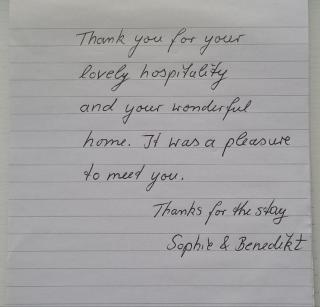 Thank you for your
lovely hospitality
and your wonderful
home. It was a pleasure
to meet you.
Thanks for the stay
Sophie & Benedikt